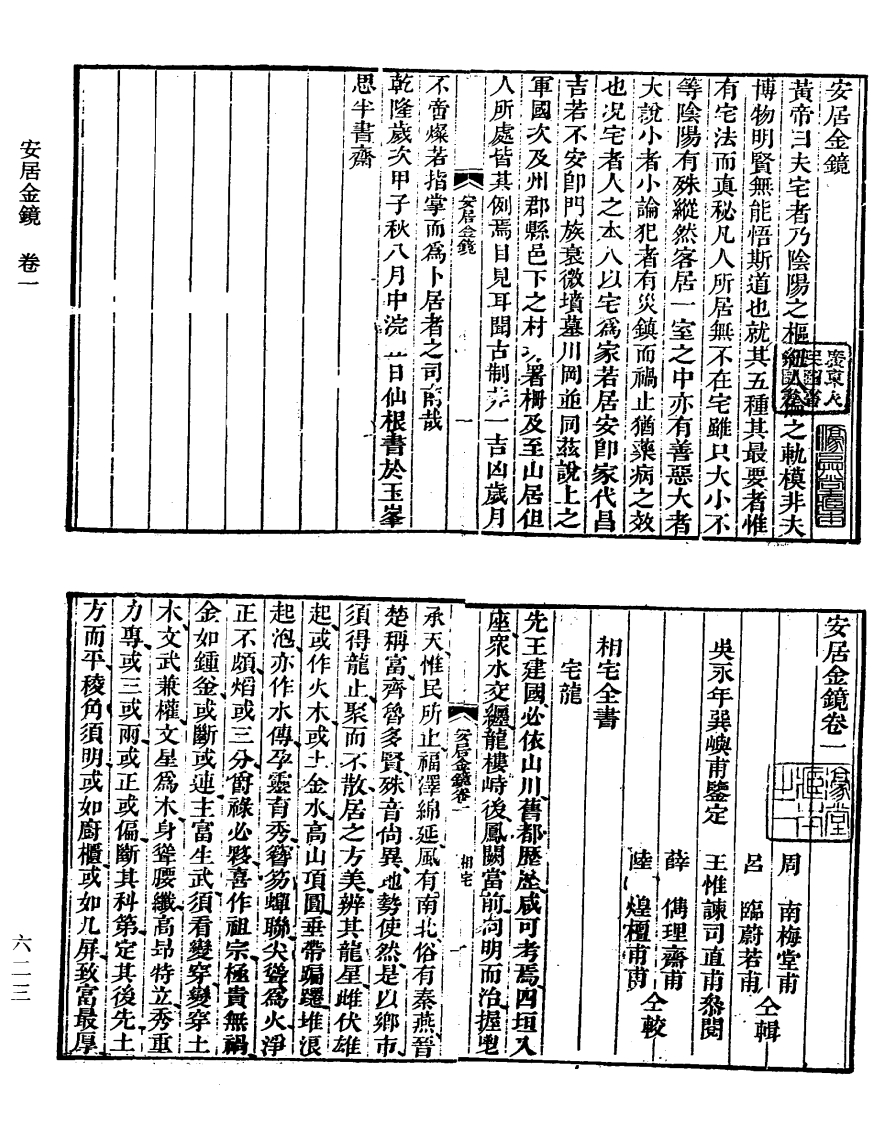 安居金鏡
黃帝曰夫宅者乃陰陽之樞紐人倫之軌模非夫
博物明賢無能悟斯道也就其五種其最要者惟
有宅法而真秘凡人所居無不在宅雖只大小不
等陰陽有殊縱然客居一室之中亦有善惡大者
大說小者小論犯者有災鎮而禍止猶藥病之效
也况宅者人之本人以宅爲家若居安卽家代昌
吉若不安卽門族衰微墳墓川岡並同茲說上之
軍國次及州郡縣邑下之村署柵及至山居但
人所處皆其例焉目見耳聞古制非一吉凶歲月
安居金鏡
一
不啻燦若指掌而爲卜居者之司南哉
乾隆歲次甲子秋八月中浣日仙根書於玉峯
思半書齋
安居金鏡 卷一
安居金鏡卷一
周 南梅堂甫
呂 臨蔚若甫 仝輯
吳永年巽嶼甫鑒定 王惟諫司直甫叅閱
薛 儁理齋甫
陸 煌檀甫 仝較
相宅全書
宅龍
先王建國必依山川舊都歷歷咸可考焉四垣入
座衆水交纒龍樓峙後鳳闕當前向明而治握
安居金鏡卷一
相宅
一
承天惟民所止福澤綿延風有南北俗有秦燕晉
楚稱富齊魯多賢殊音尙異地勢使然是以鄉市
須得龍止聚而不散居之方美辨其龍星雌伏雄
起或作火木或土金水高山頂圓垂帶蹁躚堆浪
起泡亦作水傳孕靈育秀簪笏蟬聯尖聳爲火淨
正不頗熖或三分爵祿必夥喜作祖宗極貴無禍
金如鍾釜或斷或連主富生武須看變穿變穿土
木文武兼權文星爲木身聳腰纖高昻特立秀重
力專或三或兩或正或偏斷其科第定其後先土
方而平稜角須明或如廚櫃或如几屏致富最厚
六二三